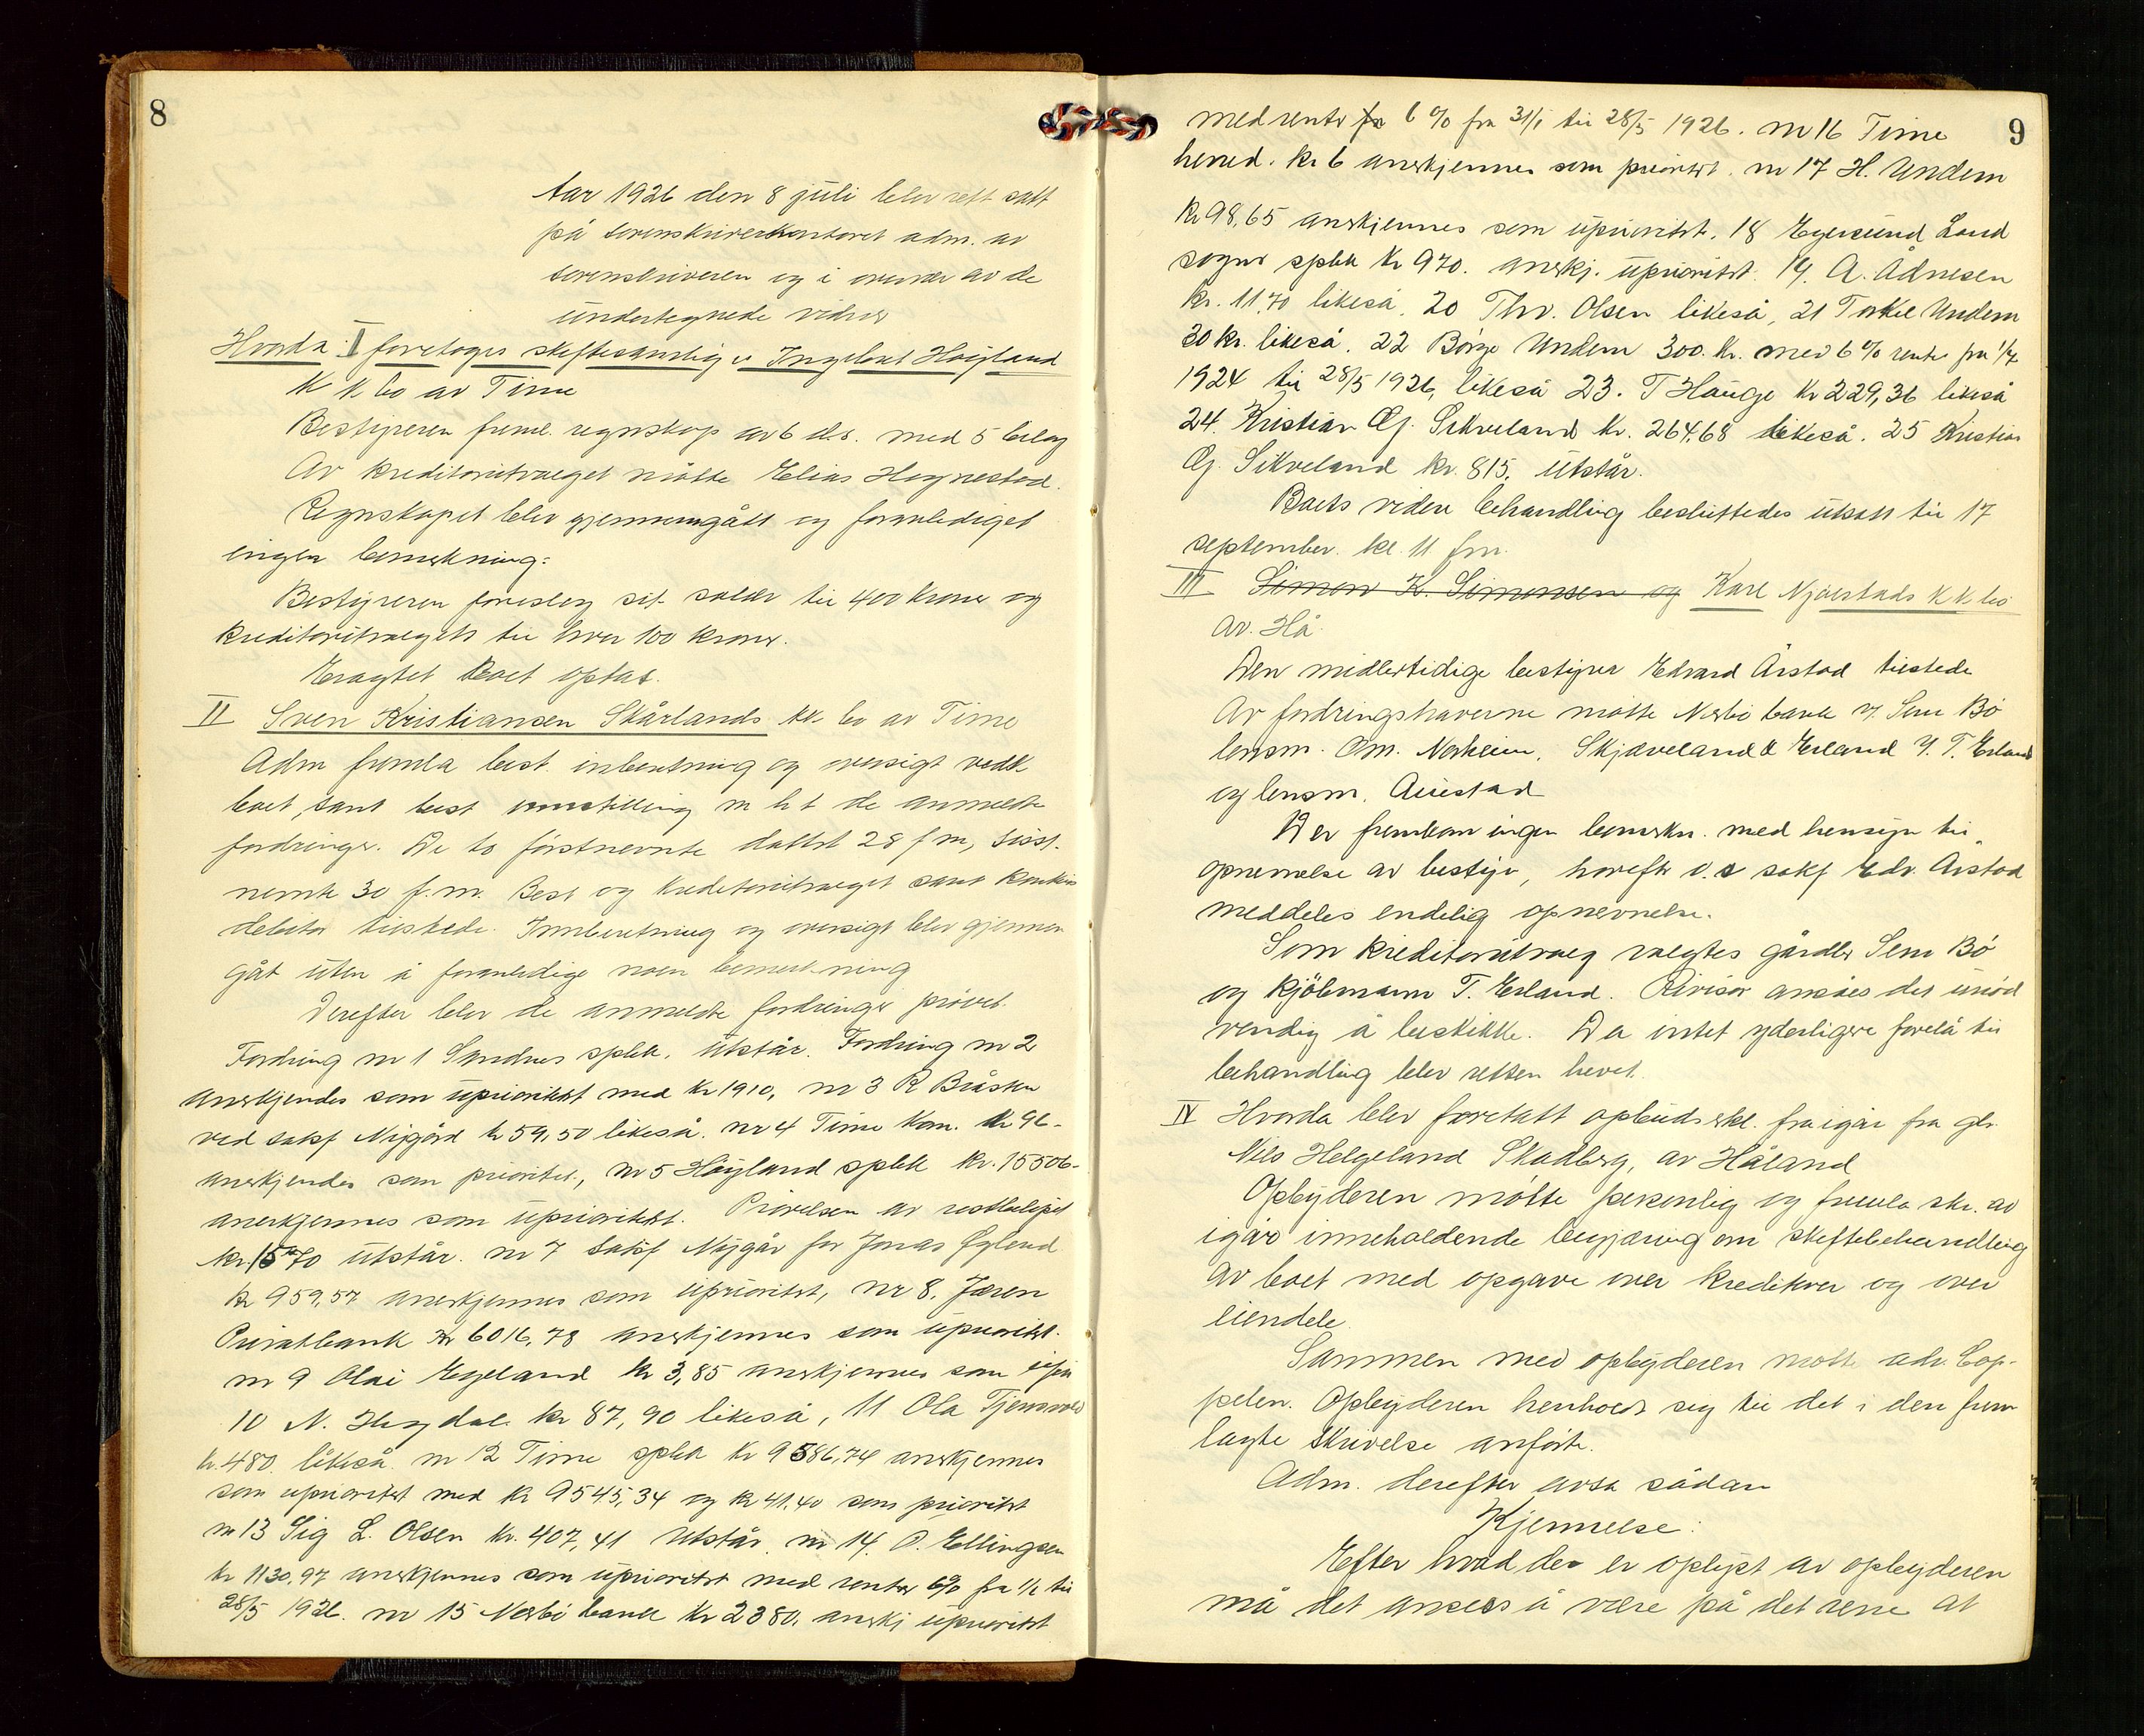 8
Aar 1926 den 8 juli blev rett satt
på sorenskriverkontoret adm. av
sorenskriveren og i overvær av de
undertegnede vidner
Hvorda: I foretoges skiftesamling i Ingebret Høiland
K K bo av Time
Bestyreren freml. regnskap av 6 ds. med 5 bilag
Av kreditorutvalget møtte Elias Hognestad.
Regnskapet blev gjennemgått og foranlediget
ingen bemerkning:
Bestyreren foreslog sit salær til 400 kroner og
kreditorutvalgets til hver 100 kroner.
Eragtet Boet optas.
II Sven Kristiansen Skårlands kk. bo av Time
Adm fremla best. inberetning og oversigt vedk.
boet, samt best innstilling m h t de anmeldte
fordringer. De to førstnevnte datert 28 f m, sisst-
nevnte 30 f.m. Best og kreditorutvalget samt konkurs
debitor tilstede. Innberetning og oversigt blev gjennem
gåt uten å foranledige noen bemerkning
Derefter blev de anmeldte fordringer prøvet.
Fordring nr 1 Sandnes spbk. utstår. Fordring nr 2
anerkjendes som uprioritert med kr 1910, nr 3 R Bråsten
ved sakf Nygård kr 59,50 likeså. nr 4 Time kom. kr 96-
anerkjendes som prioritet, nr 5 Høyland spbk kr. 15506-
anerkjennes som uprioritert. Prøvelsen av restbeløpet
kr. 1570 utstår. nr 7 Sakf Nygår for Jonas Øgland
kr 959,57 anerkjennes som uprioritert, nr 8. Jæren
Privatbank kr 6016,78 anerkjennes som uprioritert.
nr 9 Olai Egeland kr 3,85 anerkjennes som upri
10 N. Hegdal kr 87,90 likeså, 11 Ola Tjensvold
kr. 480 likeså. nr 12 Time spbk kr 9586,74 anerkjennes
som uprioritert med kr 9545,34 og kr 41.40 som prioritert
nr 13 Sig L. Olsen kr. 407,41 utstår. nr 14. O. Ellingsen
kr 1130.97 anerkjennes som uprioritert med renter 6% fra 1/1 til
28/5 1926. nr 15 Nærbø bank kr 2380. anerkj uprioritert
9
med renter fra 6 % fra 31/1 til 28/5 1926. nr 16 Time
herred. kr 6 anerkjennes som prioritert. nr 17 H. Undem
kr 98,65 anerkjennes som uprioritert. 18 Egersund Land
sogns spbk kr 970. anerkj. uprioritert. 19. A. Ådnesen
kr. 11,70 likeså. 20 Thv. Olsen likeså, 21 Torkel Undem
30 kr. likeså. 22 Børge Undem 300. kr. med 6% renter fra 1/7
1924 til 28/5 1926, likeså 23. T Hauge kr 229,36 likeså
24. Kristian Gj. Sikveland kr. 264.68 likeså. 25 Kristian
Gj. Sikveland kr. 815. utstår.
Boets videre behandling besluttedes utsatt til 17
september. kl. 11 fm.
III Simon K. Simonsen og Karl Njølstads K K. bo
av. Hå.
Den midlertidige bestyrer Edvard Årstad tilstede
Av fordringshaverne møtte Nærbø bank v/ Sem Bø
lensm. Om. Norheim. Skjæveland & Erland v. T. Erland
og lensm. Auestad
Der fremkom ingen bemerkn. med hensyn til
opnevnelse av bestyr, hvorefter o.r sakf Edv. Årstad
meddeles endelig opnevnelse.
Som kreditorutvalg valgtes gårdbr Sem Bø
og kjøbmann T. Erland. Revisor ansåes det unød
vendig å beskikke. Da intet yderligere forelå til
behandling blev retten hevet.
IV Hvorda blev foretatt opbudserkl. fra igår fra gbr.
Nils Helgeland Skadberg, av Håland
Opbyderen møtte personlig og fremla skr. av
igår inneholdende begjæring om skiftebehandling
av boet med opgave over kreditorer og over
eiendele.
Sammen med opbyderen møtte adv. Cop-
pelen. Opbyderen henholdt seg til det i den frem
lagte skrivelse anførte.
Adm. derefter avsa sådan
Kjennelse:
Efter hvad der er oplyst av opbyderen
må det ansees å være på det rene at